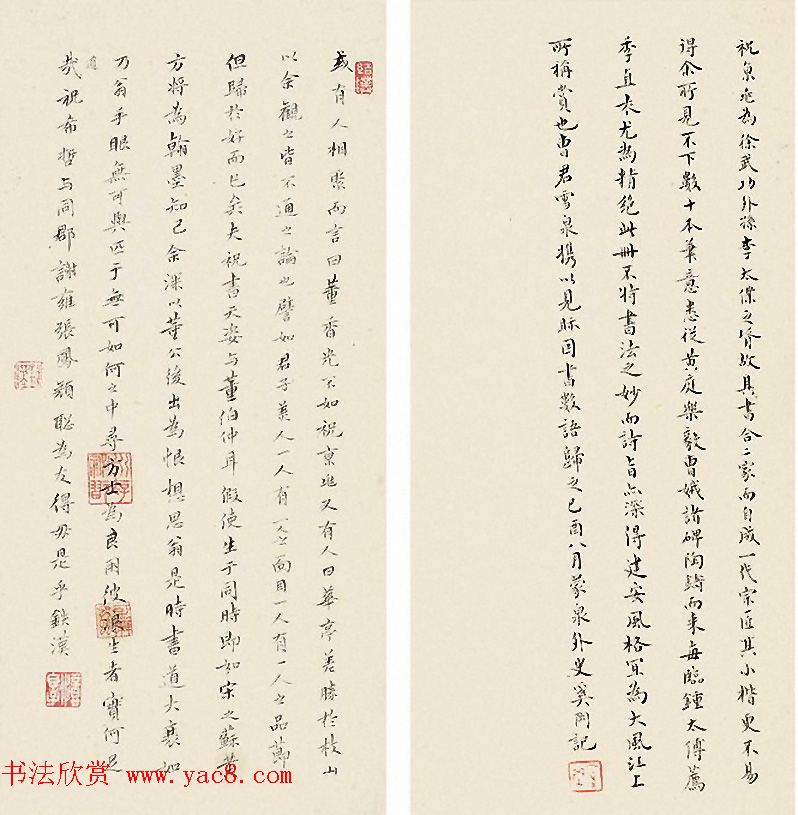 祝京兆為徐武功外孫李太僕之婿故其書合二家而自成一代宗匠其小楷更不易
得余所見不下數十本筆意悉從黃庭樂毅曹娥諸碑陶鑄而來每臨鍾太傅薦
季直表尤為精絕此冊不特書法之妙而詩旨亦深得建安風格宜為大風江上
所稱賞也曹君雪泉攜以見眎因書數語歸之己酉八月蒙泉外史奚岡記
或有人相聚而言曰董香光不如祝京兆又有人曰華亭差勝於枝山
以余觀之皆不通之論也譬如君子美人一人有一人之面目一人有一人之品節
但歸於好而已矣夫祝書天姿与董伯仲耳假使生于同時即如宋之蘇黃
方將為翰墨知己余深以董公後出為恨想思翁是時書道大襄如
乃翁手眼無可與匹于無可如何之中尋方士為良朋彼狼生者實何足
哉祝希哲与同郡謝雍張鳳顏聰為友得毋是乎鉄漢
书法欣赏 www.yac8.com